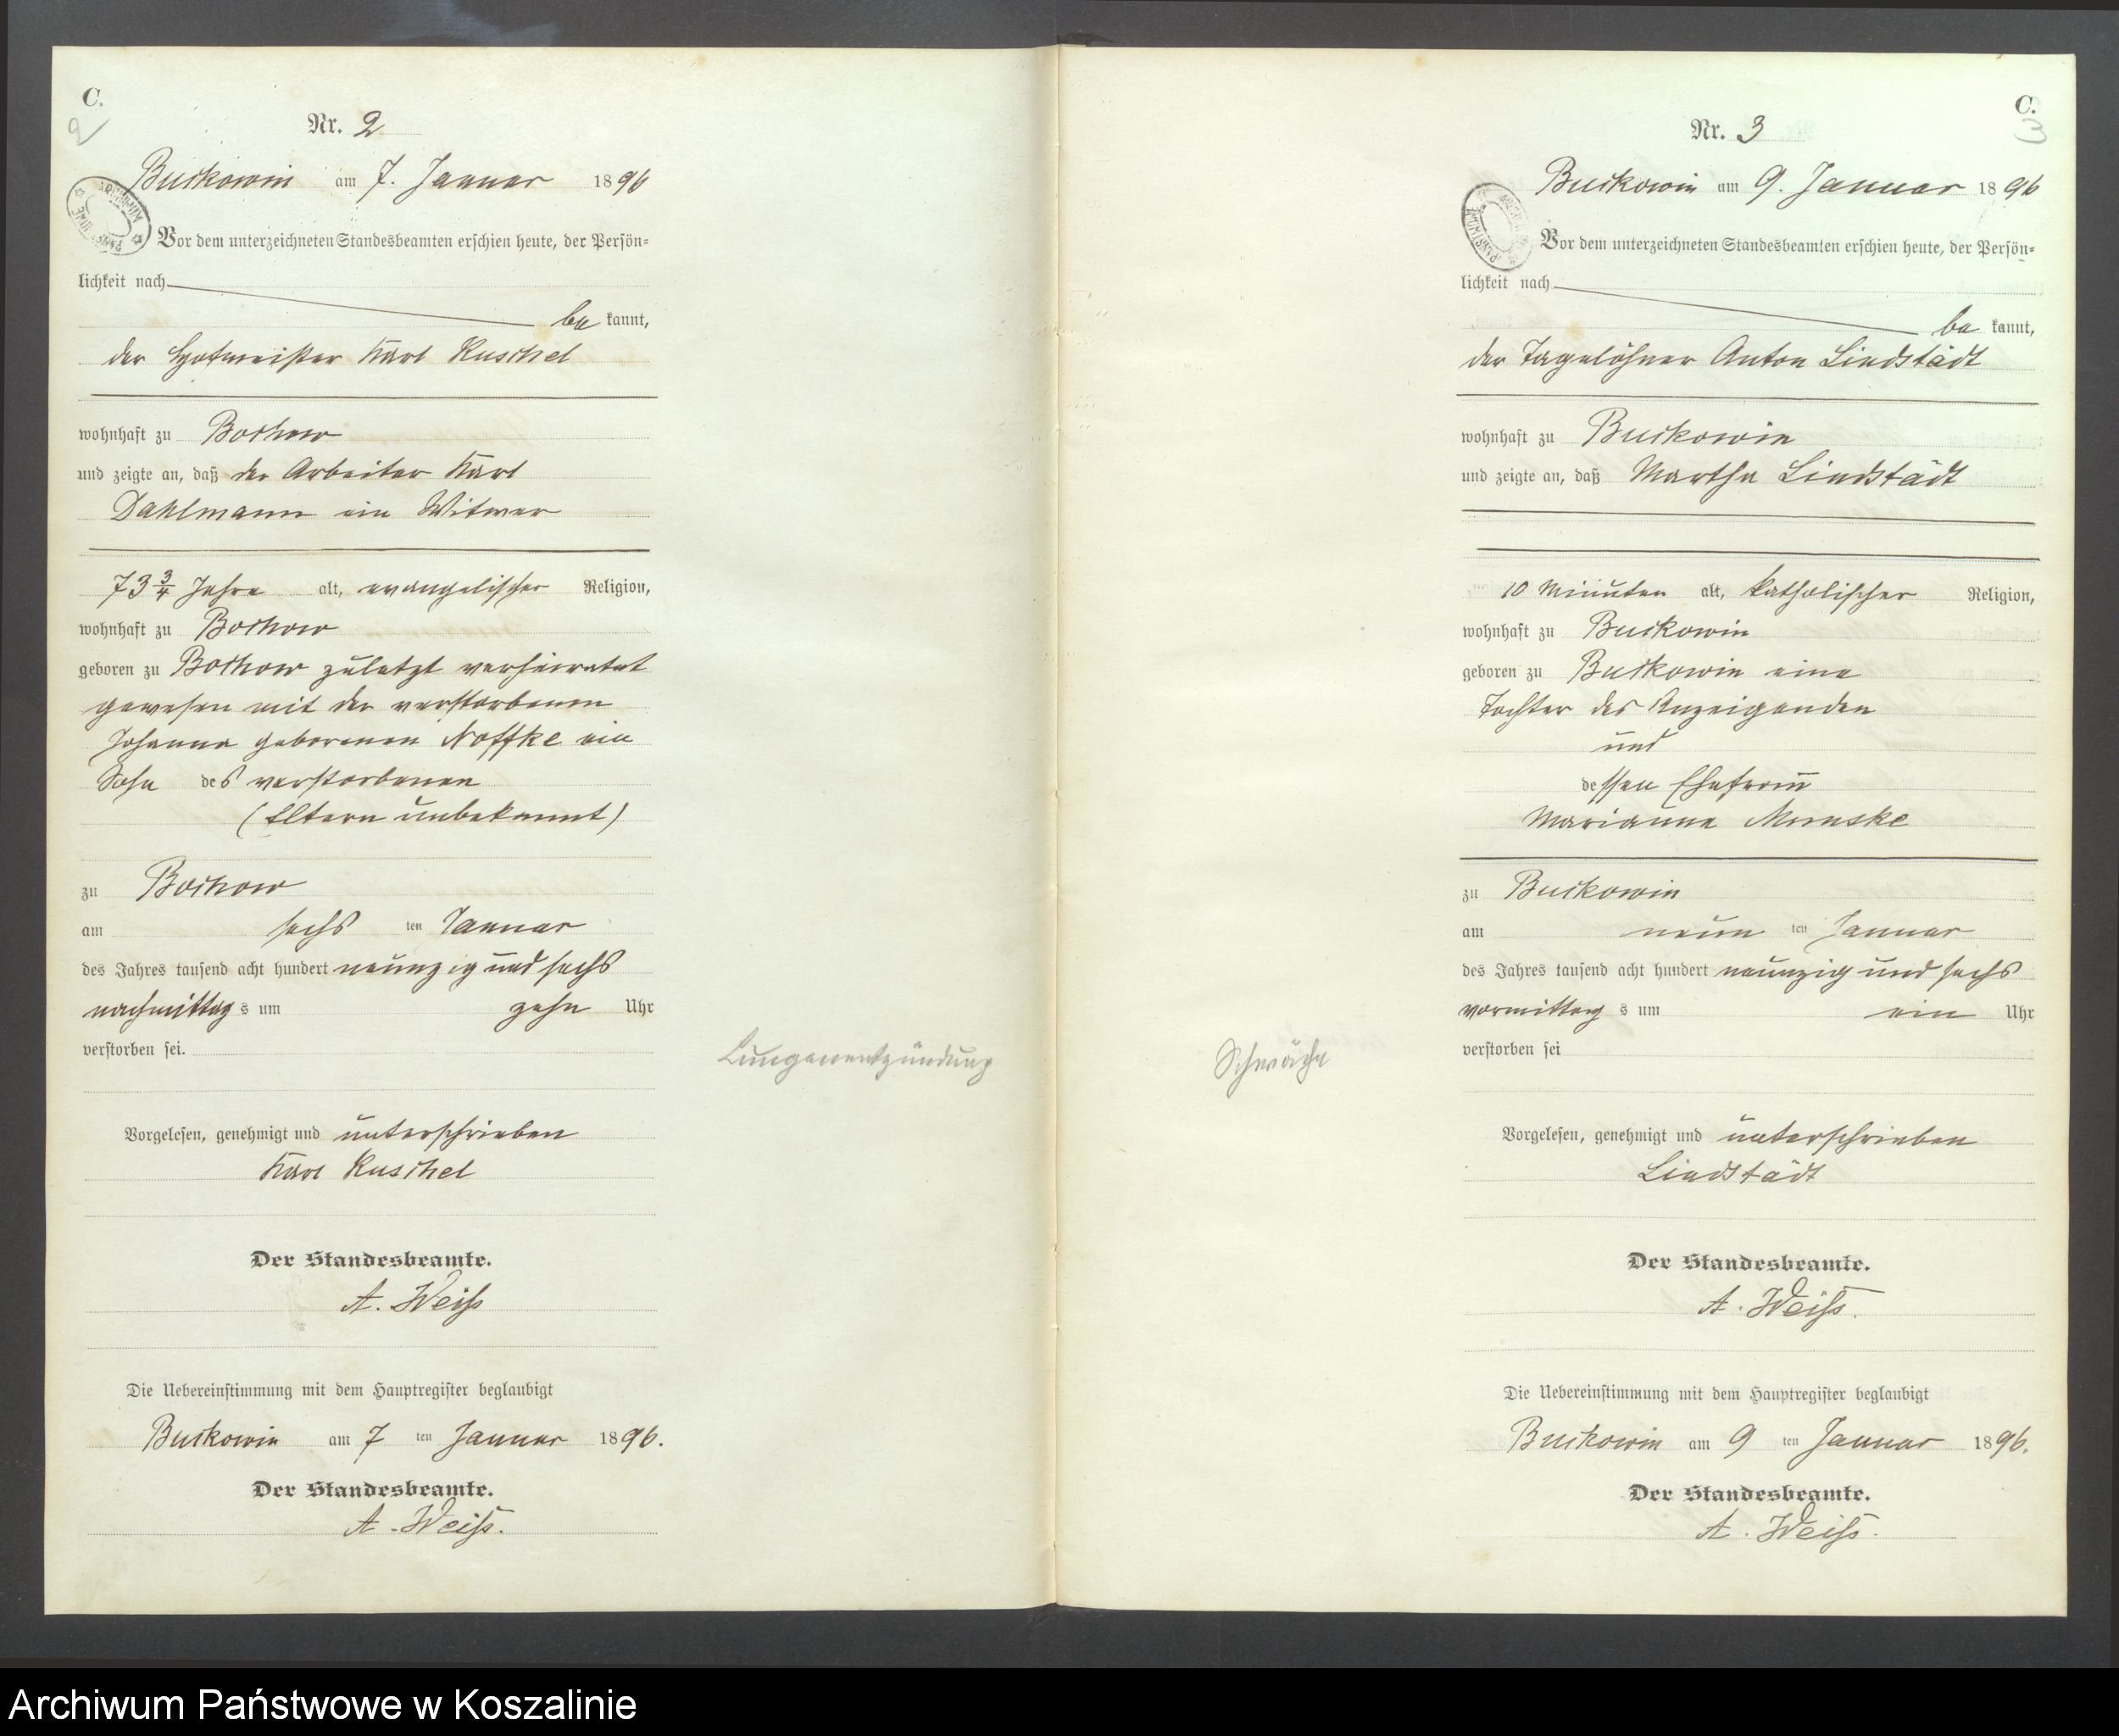 C.
2
Nr. 2
Buckowin am 7. Januar 1896
Vor dem unterzeichneten Standesbeamten erschien heute, der Persön-
lichkeit nach
be kannt,
der Hofmeister Karl Kuschel
wohnhaft zu Bochow
und zeigte an, daß der Arbeiter Karl
Dahlmann ein Witwer
73 3/4 Jahre alt, evangelischer Religion,
wohnhaft zu Bochow
geboren zu Bochow zuletzt verheiratet
gewesen mit der verstorbenen
Johanna geborenen Noffke ein
Sohn des verstorbenen
(Eltern unbekannt)
zu Bochow
am sechs ten Januar
des Jahres tausend acht hundert neunzig und sechs
nachmittag s um zehn Uhr
verstorben sei.
Lungenentzündung
Vorgelesen, genehmigt und unterschrieben
Karl Kuschel
Der Standesbeamte.
A. Weiß
Die Uebereinstimmung mit dem Hauptregister beglaubigt
Buckowin am 7 ten Januar 1896.
Der Standesbeamte.
A. Weiß.
C.
3
Nr. 3
Buckowin am 9. Januar 1896
Vor dem unterzeichneten Standesbeamten erschien heute, der Persön-
lichkeit nach
be kannt,
der Tagelöhner Anton Lindstädt
wohnhaft zu Buckowin
und zeigte an, daß Martha Lindstädt
10 Minuten alt, katholischer Religion,
wohnhaft zu Buckowin
geboren zu Buckowin eine
Tochter des Anzeigenden
und
dessen Ehefrau
Marianna Manske
zu Buckowin
am neun ten Januar
des Jahres tausend acht hundert neunzig und sechs
vormittag s um ein Uhr
verstorben sei
Schwäche
Vorgelesen, genehmigt und unterschrieben
Lindstädt
Der Standesbeamte.
A. Weiß.
Die Uebereinstimmung mit dem Hauptregister beglaubigt
Buckowin am 9 ten Januar 1896.
Der Standesbeamte.
A. Weiß.
Archiwum Państwowe w Koszalinie